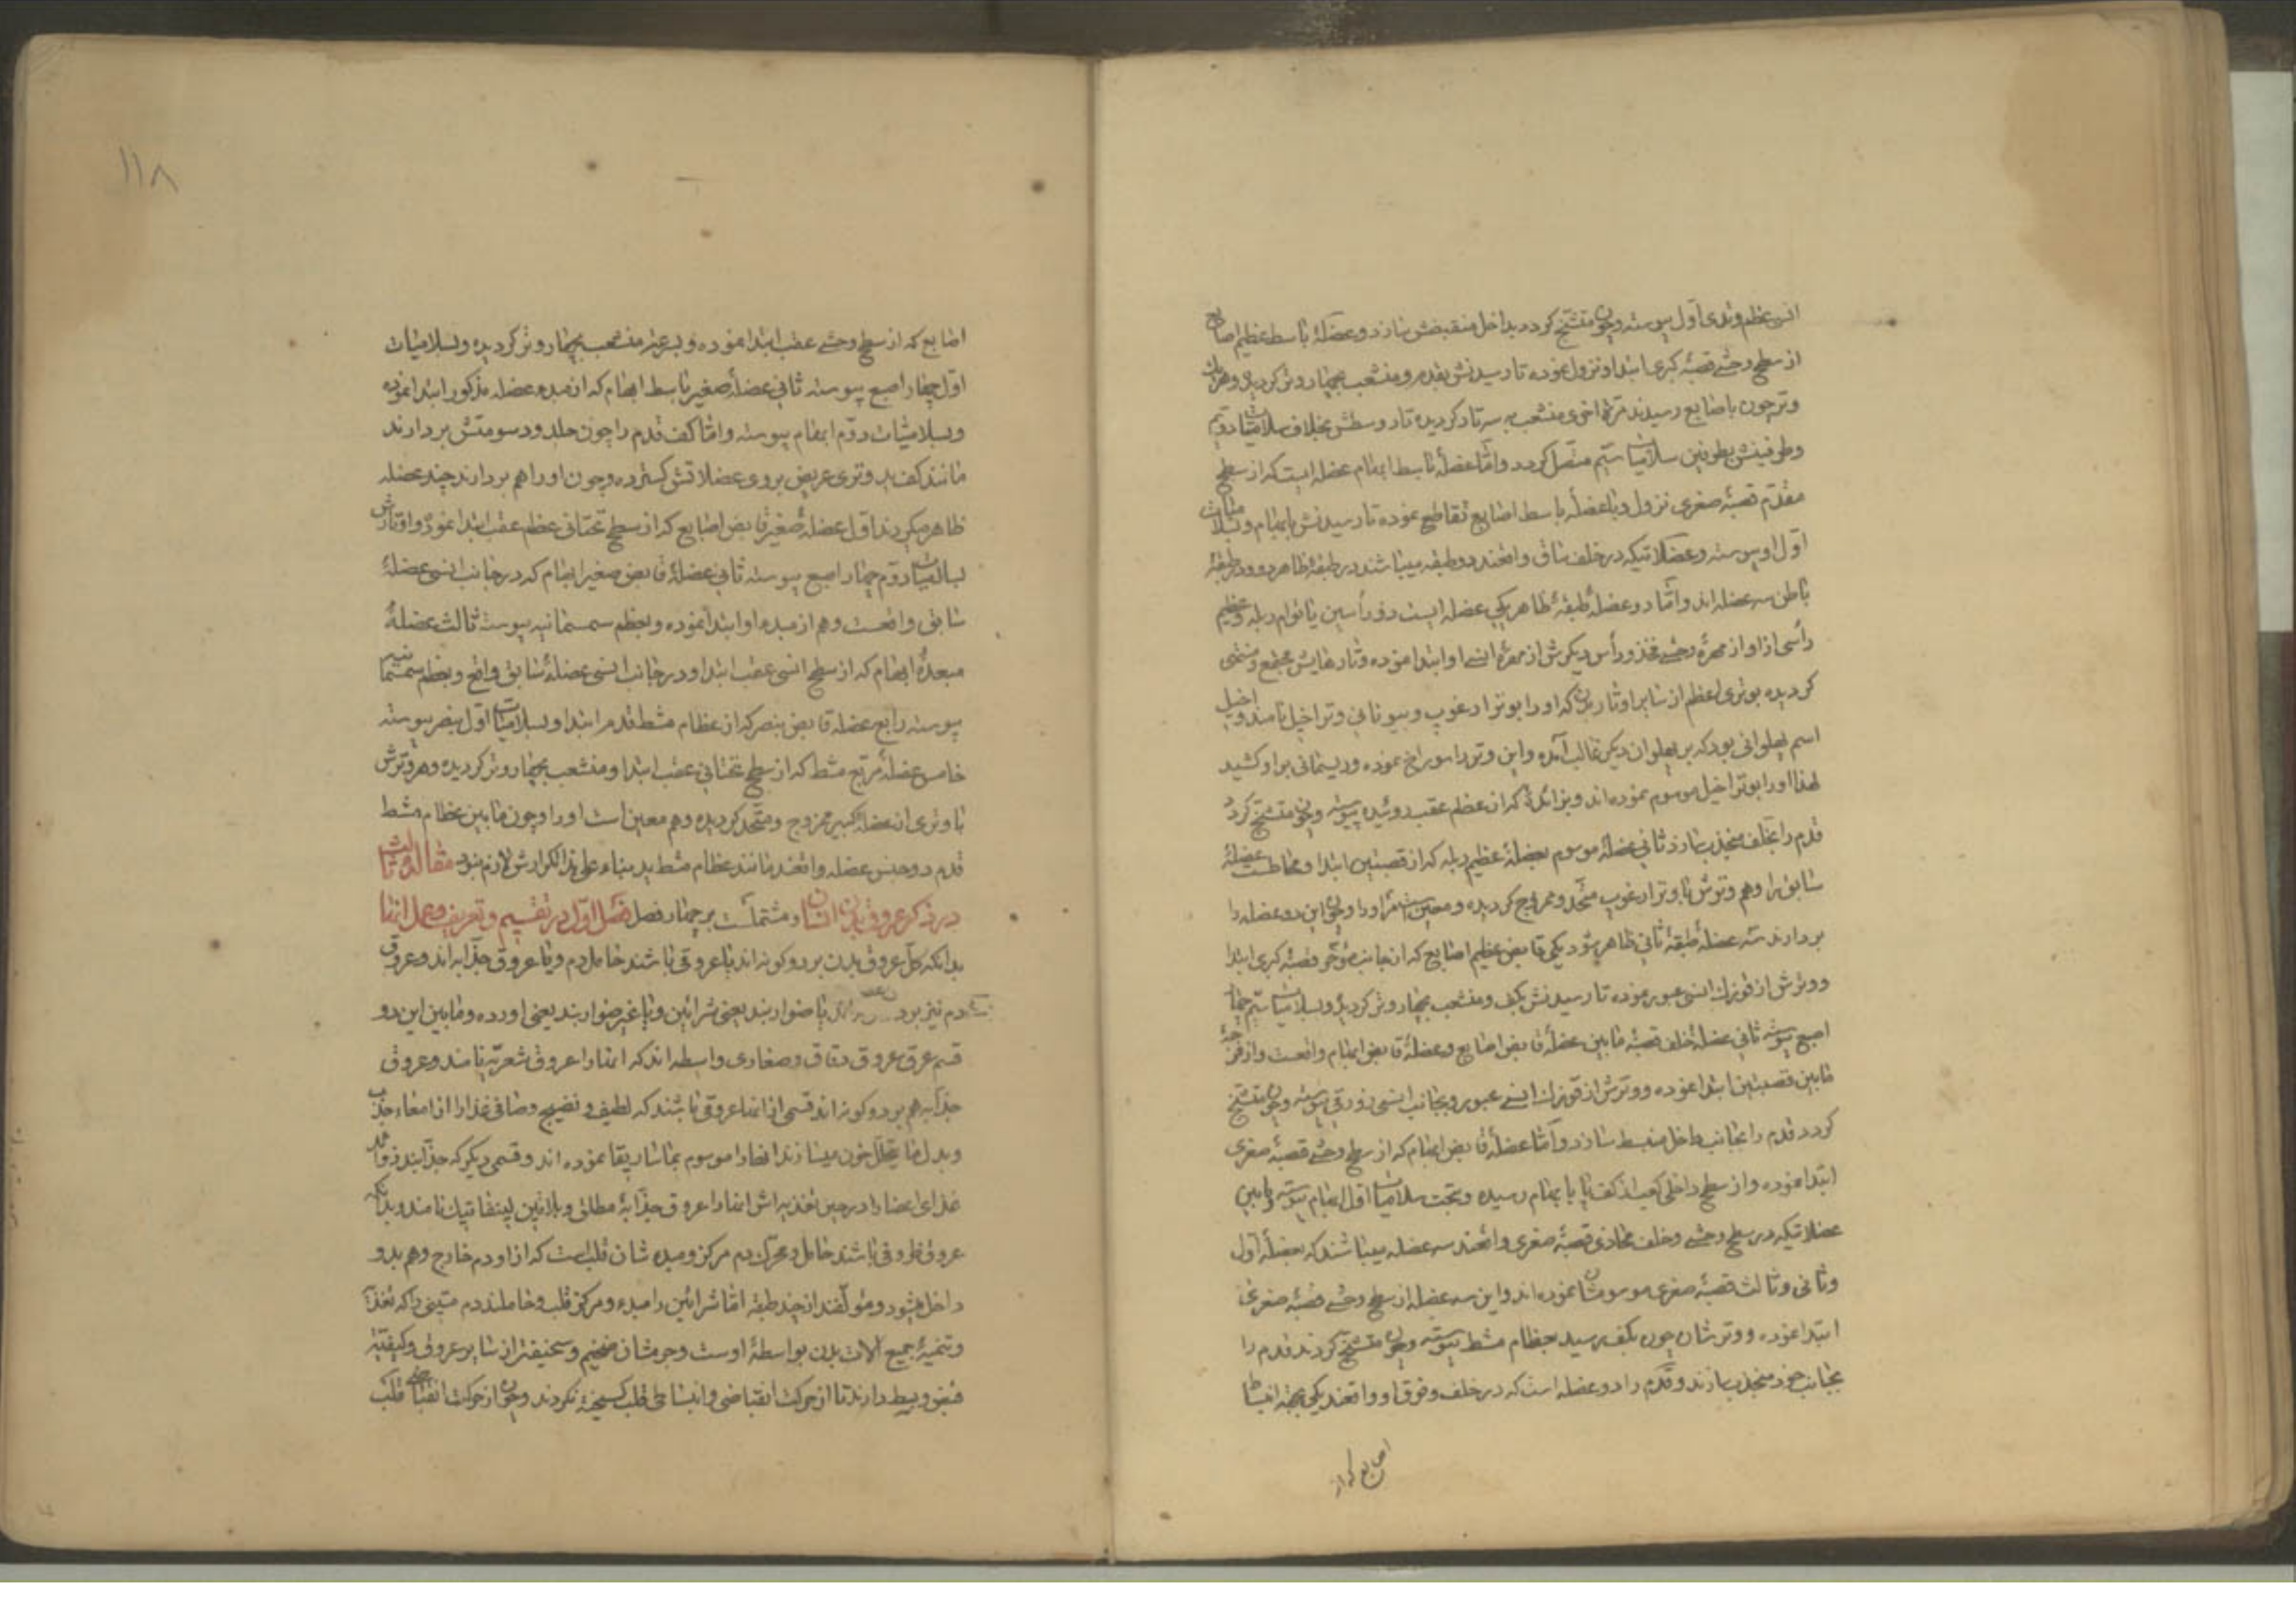 انسی عظم وندی اول پیوسته وچون متشنج کردد بداخل منقبضش سازد وعضلهٔ باسط عظیم اصابع
از سطح وحشی قصبهٔ کبری ابتدا ونزول نموده تا رسیدنش بقدم ومنشعب بچهار وتر کردیده وهر یک
وتر چون باصابع رسیدند مرة اخری منشعب به سه تار کردیده تار وسطش بخلاف سلامیات دویم
وطرفینش بطرفین سلامیات سیم متصل کردد واما عضلهٔ باسط ابهام عضله ایست که از سطح
مقدم قصبهٔ صغری نزول وباعضلهٔ باسط اصابع تقاطع نموده تا رسیدنش بابهام وبسلامیات
اول او پیوسته وعضلاتیکه در خلف ساق واقعند دو طبقه میباشند در طبقهٔ ظاهر دو ودر طبقهٔ
باطن سه عضله اند واما دو عضلهٔ طبقهٔ ظاهر یکی عضله ایست ذو رأسین یا توام ربله وعظیم
رأسی از او از مهرهٔ وحشی فخذ ورأس دیکرش از مهرهٔ انسی او ابتدا نموده وتارهایش مجتمع ومنتهی
کردیده بوتری اعظم از سایر اوتار بدن که او را بوتر ارغوب وبیونانی وتر اخیل نامند واخیل
اسم پهلوانی بود که بر پهلوان دیکر غالب آمده واین وتر را سوراخ نموده وریسمانی بر او کشید
لهذا او را بوتر اخیل موسوم نموده اند وبزائدهٔ که از عظم عقب روئیده پیوسته وچون متشنج کردد
قدم را بخلف منجذب سازد ثانی عضلهٔ موسوم بعضلهٔ عظیم ربله که از قصبتین ابتدا ومخاطست عضلهٔ
سابق را وهم وترش با وتر ارغوب متحد وممزوج کردیده ومعین است مر او را وچون این دو عضله را
بردارند سه عضلهٔ طبقهٔ ثانی ظاهر شود یکی قابض عظیم اصابع که از جانب مؤخر قصبهٔ کبری ابتدا
ووترش از قوزک انسی عبور نموده تا رسیدنش بکف ومنشعب بچهار وتر کردیده وبسلامیات سیم چهار
اصبع پیوسته ثانی عضلهٔ خلف قصبهٔ مابین عضلهٔ قابض اصابع وعضلهٔ قابض ابهام واقعست واز فرجهٔ
مابین قصبتین ابتدا نموده ووترش از قوزک انسی عبور وبجانب انسی زورقی پیوسته وچون متشنج
کردد قدم را بجانب داخل منبسط سازد واما عضلهٔ قابض ابهام که از سطح وحشی قصبهٔ صغری
ابتدا نموده واز سطح داخلی کعب از کف پا بابهام رسیده وتحت سلامیات اول ابهام پیوسته ومابین
عضلاتیکه در سطح وحشی وخلف محاذی قصبهٔ صغری واقعند سه عضله میباشند که بعضلهٔ اول
وثانی وثالث قصبهٔ صغری موسومشان نموده اند واین سه عضله از سطح وحشی قصبهٔ صغری
ابتدا نموده ووترشان چون بکف رسید بعظام مشط پیوسته وچون متشنج کردند قدم را
بجانب خود منجذب سازند وقدم را دو عضله است که در خلف وفوق او واقعند یکی بجهة انبساط
اصابع که از
۱۱۸
اصابع که از سطح وحشی عقب ابتدا نموده وبسرعت منشعب بچهار وتر کردیده وبسلامیات
اول چهار اصبع پیوسته ثانی عضلهٔ صغیر باسط ابهام که از مبدء عضله مذکور ابتدا نموده
وبسلامیات دوم ابهام پیوسته واما کف قدم را چون جلد ودسومتش بردارند
مانند کف ید وتری عریض بر روی عضلاتش کسترده وچون او را هم بردارند چند عضله
ظاهر میکردند اول عضلهٔ صغیر قابض اصابع که از سطح تحتانی عظم عقب ابتدا نموده واوتارش
بسلامیات دوم چهار اصبع پیوسته ثانی عضلهٔ قابض صغیر ابهام که در جانب انسی عضلهٔ
سابق واقعست وهم از مبدء او ابتدا نموده وبعظم سمسمانیه پیوسته ثالث عضلهٔ
مبعدهٔ ابهام که از سطح انسی عقب ابتدا ودر جانب انسی عضلهٔ سابق واقع وبعظم سمسمانیه
پیوسته رابع عضله قابض بنصر که از عظام مشط قدم ابتدا وبسلامیات اول بنصر پیوسته
خامس عضلهٔ مربع مشط که از سطح تحتانی عقب ابتدا ومنشعب بچهار وتر کردیده وهر وترش
با وتری از عضلهٔ کبیر ممزوج ومتحد کردیده وهم معین است او را وچون مابین عظام مشط
قدم دو جنس عضله واقعند مانند عظام مشط ید بناء علی هذا تکرارش لازم نبود مقالهٔ ثالث
در ذکر عروق بدن انسان ومشتملست بر چهار فصل فصل اول در تقسیم وتعریف وعمل انها
بدانکه کل عروق بدن بر دو کونه اند یا عروقی باشند حامل دم ویا عروق جذابه اند وعروق
دم نیز بر دو یا ضوارند یعنی شرائین ویا غیر ضوارند یعنی اورده ومابین این دو
قسم عرق عروق دقاق وصغاری واسطه اند که انها را عروق شعریه نامند وعروق
جذابه هم بر دو کونه اند قسمی از انها عروقی باشند که لطیف ونضیج وصافی غذا را از امعاء جذب
وبدل ما یتحلل خون میسازند انها را موسوم بماساریقا نموده اند وقسمی دیکر که جذابند زواید
غذای اعضا را در حین تغذیه اش انها را عروق جذابهٔ مطلق وبلاتین لینفاتیک نامند وبدانکه
عروق ظروفی باشند حامل ومحرک دم مرکز ومبدء شان قلب است که از او دم خارج وهم بدو
داخل میشود ومؤلفند از چند طبقه اما شرائین را مبدء ومرکز قلب وحاملند دم متینی را که تغذیه
وتنمیهٔ جمیع آلات بدن بواسطهٔ اوست وجرمشان ضخیم وسخینتر از سایر عروق وکیفیت
قبض وبسط دارند تا از حرکت انقباضی وانبساطی قلب کسیخته نکردند وچون از حرکت انقباضی قلب